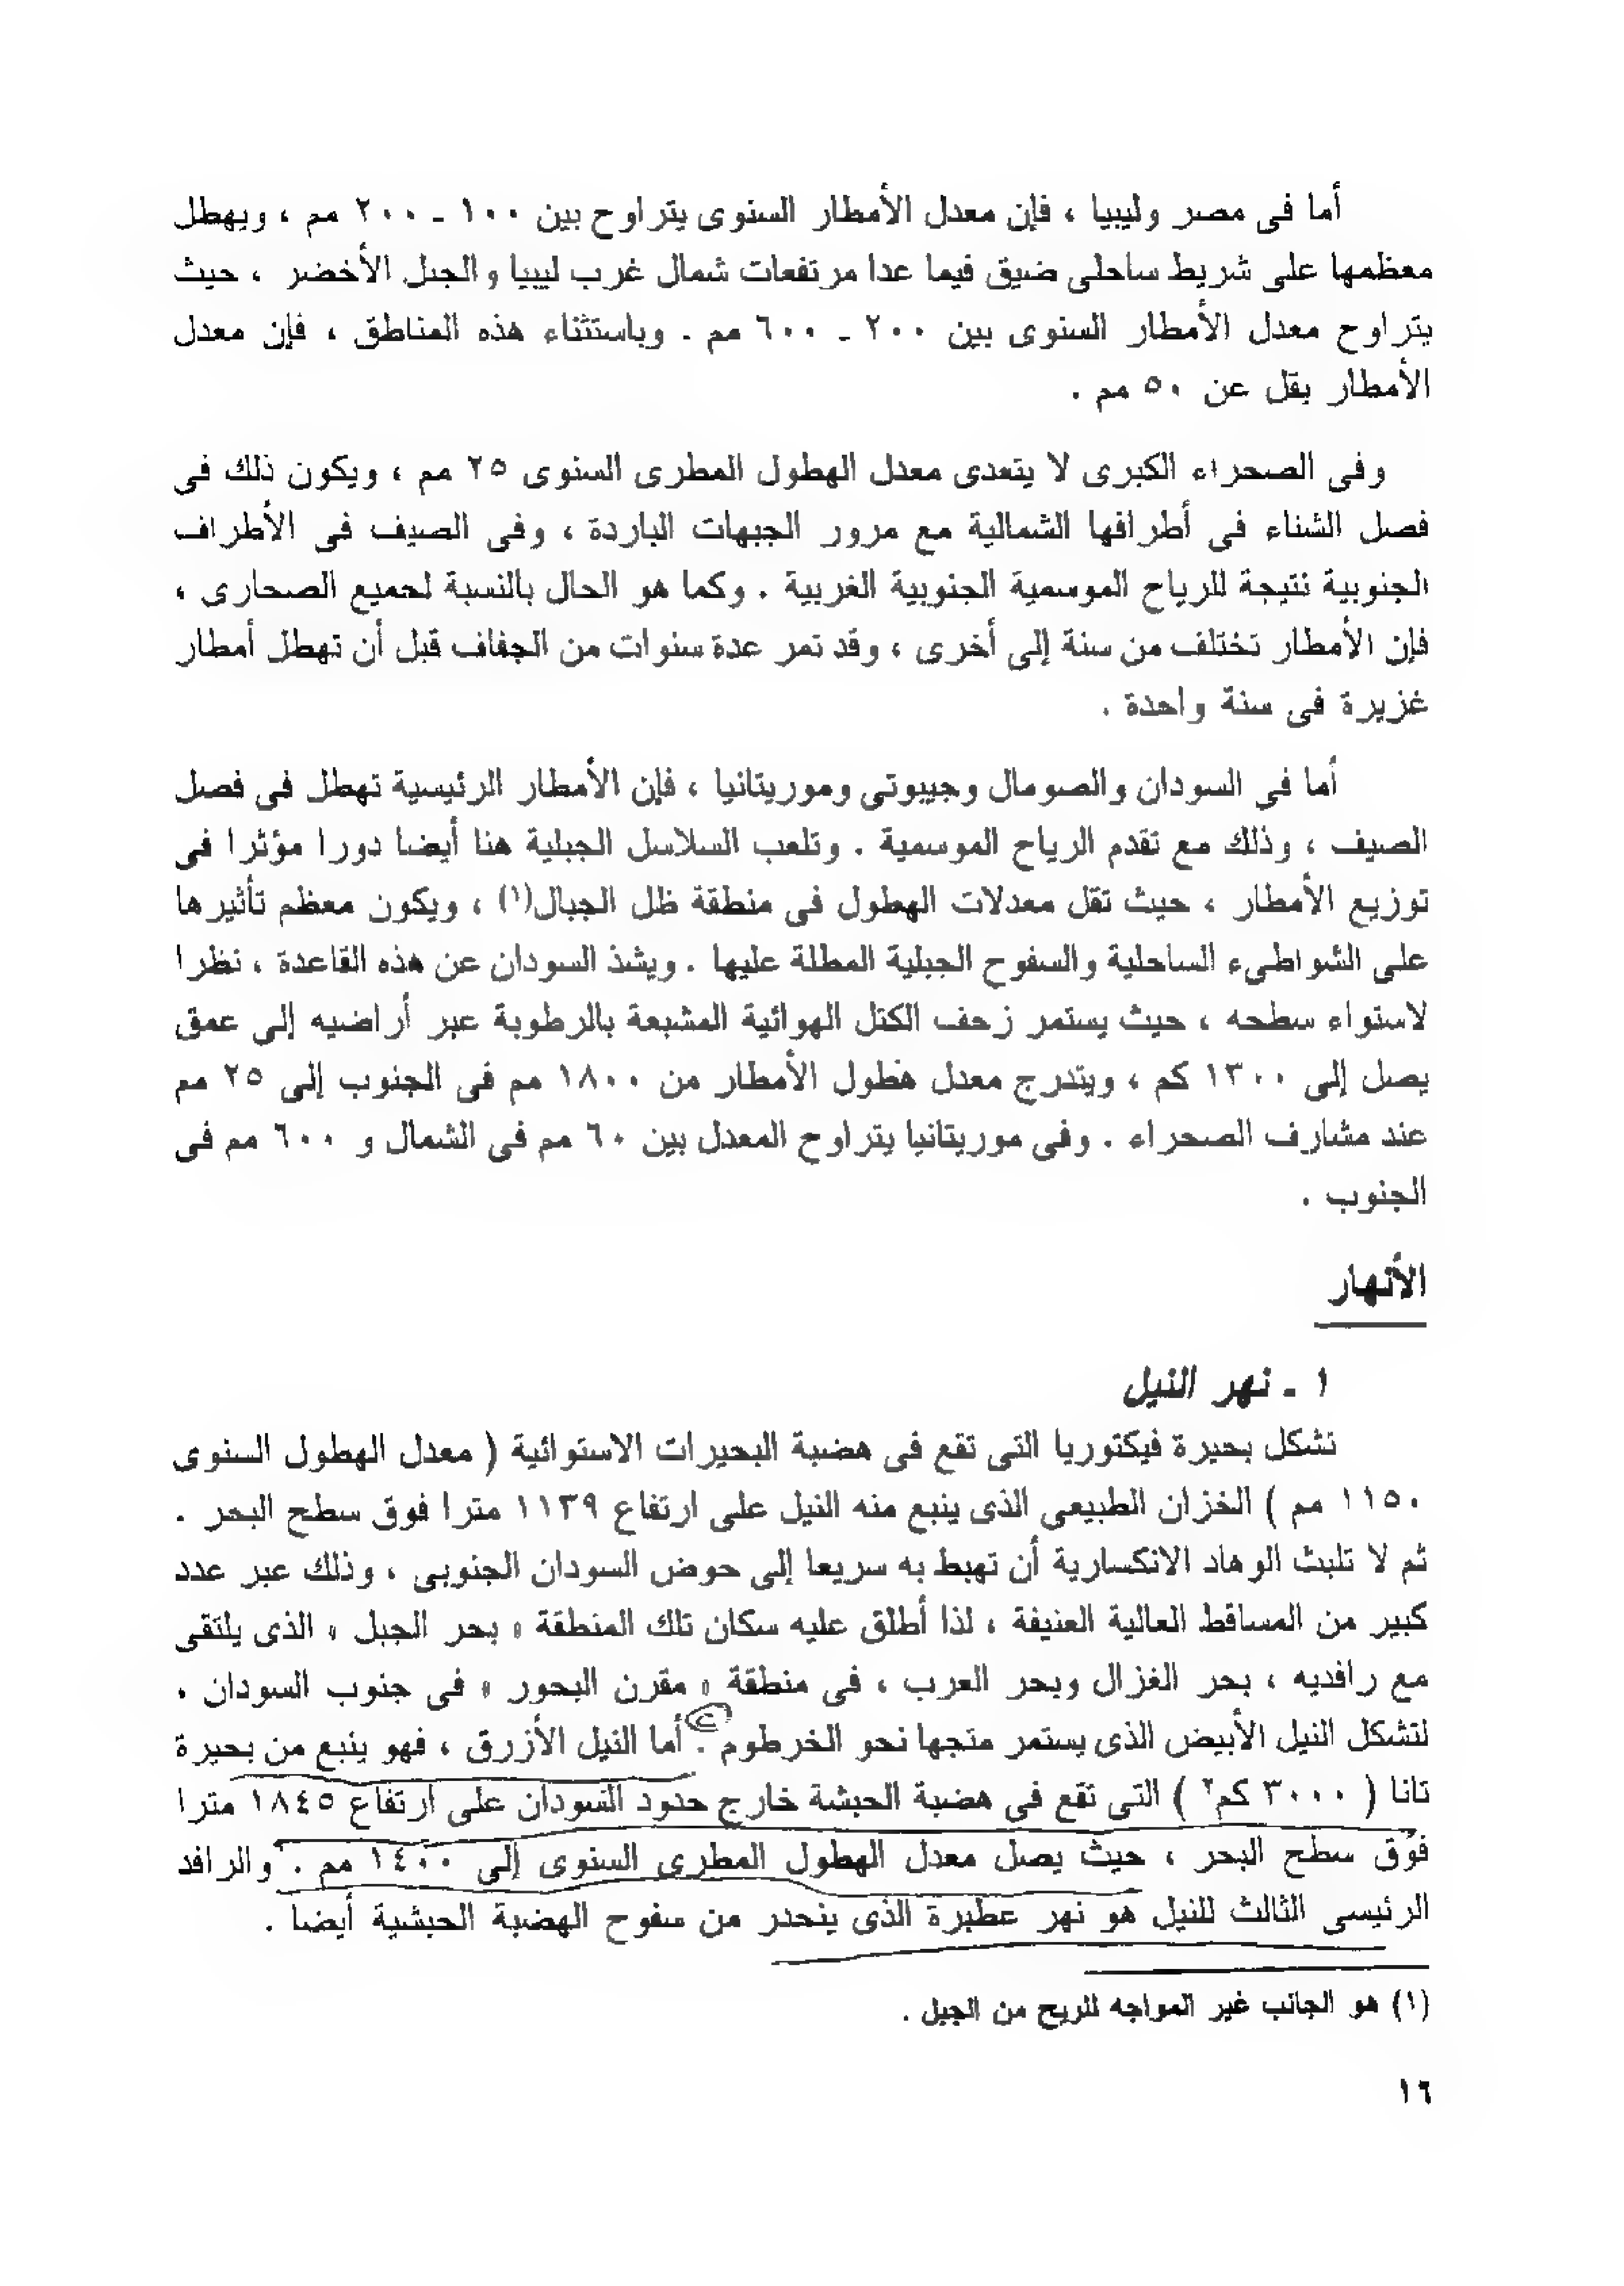 أما فى مصر وليبيا ، فإن معدل الأمطار السنوى يتراوح بين ١٠٠ - ٢٠٠ مم ، ويهطل
معظمها على شريط ساحلى ضيق فيما عدا مرتفعات شمال غرب ليبيا والجبل الأخضر ، حيث
يتراوح معدل الأمطار السنوى بين ٢٠٠ - ٦٠٠ مم . وباستثناء هذه المناطق ، فإن معدل
الأمطار يقل عن ٥٠ مم .
وفى الصحراء الكبرى لا يتعدى معدل الهطول المطرى السنوى ٢٥ مم ، ويكون ذلك فى
فصل الشتاء فى أطرافها الشمالية مع مرور الجبهات الباردة ، وفى الصيف فى الأطراف
الجنوبية نتيجة للرياح الموسمية الجنوبية الغربية . وكما هو الحال بالنسبة لجميع الصحارى ،
فإن الأمطار تختلف من سنة إلى أخرى ، وقد تمر عدة سنوات من الجفاف قبل أن تهطل أمطار
غزيرة فى سنة واحدة .
أما فى السودان والصومال وجيبوتى وموريتانيا ، فإن الأمطار الرئيسية تهطل فى فصل
الصيف ، وذلك مع تقدم الرياح الموسمية . وتلعب السلاسل الجبلية هنا أيضا دورا مؤثرا فى
توزيع الأمطار ، حيث تقل معدلات الهطول فى منطقة ظل الجبال(١) ، ويكون معظم تأثيرها
على الشواطىء الساحلية والسفوح الجبلية المطلة عليها . ويشذ السودان عن هذه القاعدة ، نظرا
لاستواء سطحه ، حيث يستمر زحف الكتل الهوائية المشبعة بالرطوبة عبر أراضيه إلى عمق
يصل إلى ١٣٠٠ كم ، ويتدرج معدل هطول الأمطار من ١٨٠٠ مم فى الجنوب إلى ٢٥ مم
عند مشارف الصحراء . وفى موريتانيا يتراوح المعدل بين ٦٠ مم فى الشمال و ٦٠٠ مم فى
الجنوب .
الأنهار
١ - نهر النيل
تشكل بحيرة فيكتوريا التى تقع فى هضبة البحيرات الاستوائية ( معدل الهطول السنوى
١١٥٠ مم ) الخزان الطبيعى الذى ينبع منه النيل على ارتفاع ١١٣٩ مترا فوق سطح البحر .
ثم لا تلبث الوهاد الانكسارية أن تهبط به سريعا إلى حوض السودان الجنوبى ، وذلك عبر عدد
كبير من المساقط العالية العنيفة ، لذا أطلق عليه سكان تلك المنطقة « بحر الجبل » الذى يلتقى
مع رافديه ، بحر الغزال وبحر العرب ، فى منطقة « مقرن البحور » فى جنوب السودان ،
لتشكل النيل الأبيض الذى يستمر متجها نحو الخرطوم . أما النيل الأزرق ، فهو ينبع من بحيرة
تانا ( ٣٠٠٠ كم٢ ) التى تقع فى هضبة الحبشة خارج حدود السودان على ارتفاع ١٨٤٥ مترا
فوق سطح البحر ، حيث يصل معدل الهطول المطرى السنوى إلى ١٤٠٠ مم . والرافد
الرئيسى الثالث للنيل هو نهر عطبرة الذى ينحدر من سفوح الهضبة الحبشية أيضا .
(١) هو الجانب غير المواجه للريح من الجبل .
١٦